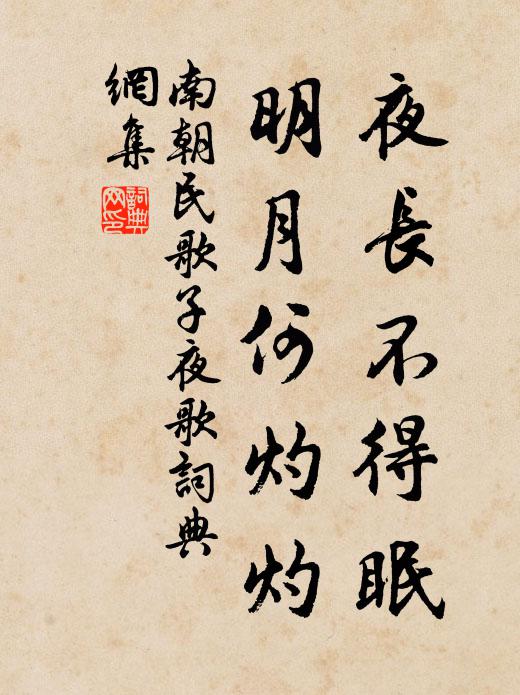 夜長不得眠
明月何灼灼
南朝民歌子夜歌詞典
網集
詞典
网印